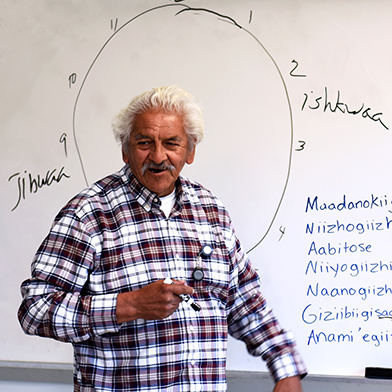 11
1
10
2
ishkwaa
9
3
Jibwaa
4
Maadanokii
Niizhogiizh
Aabitose
Niiyogiizhi
Naanogiizh
Giziibiigisa
Anami'egii